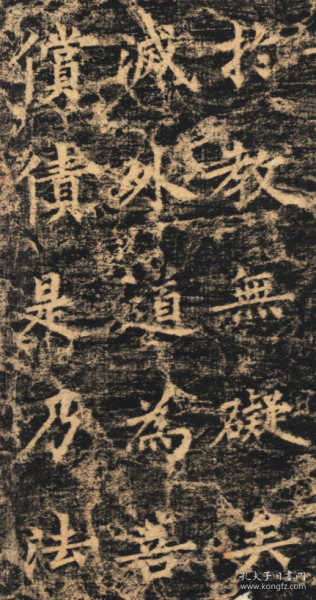 於教無礙矣
滅外道為菩
償債是乃法
孔夫子旧书网